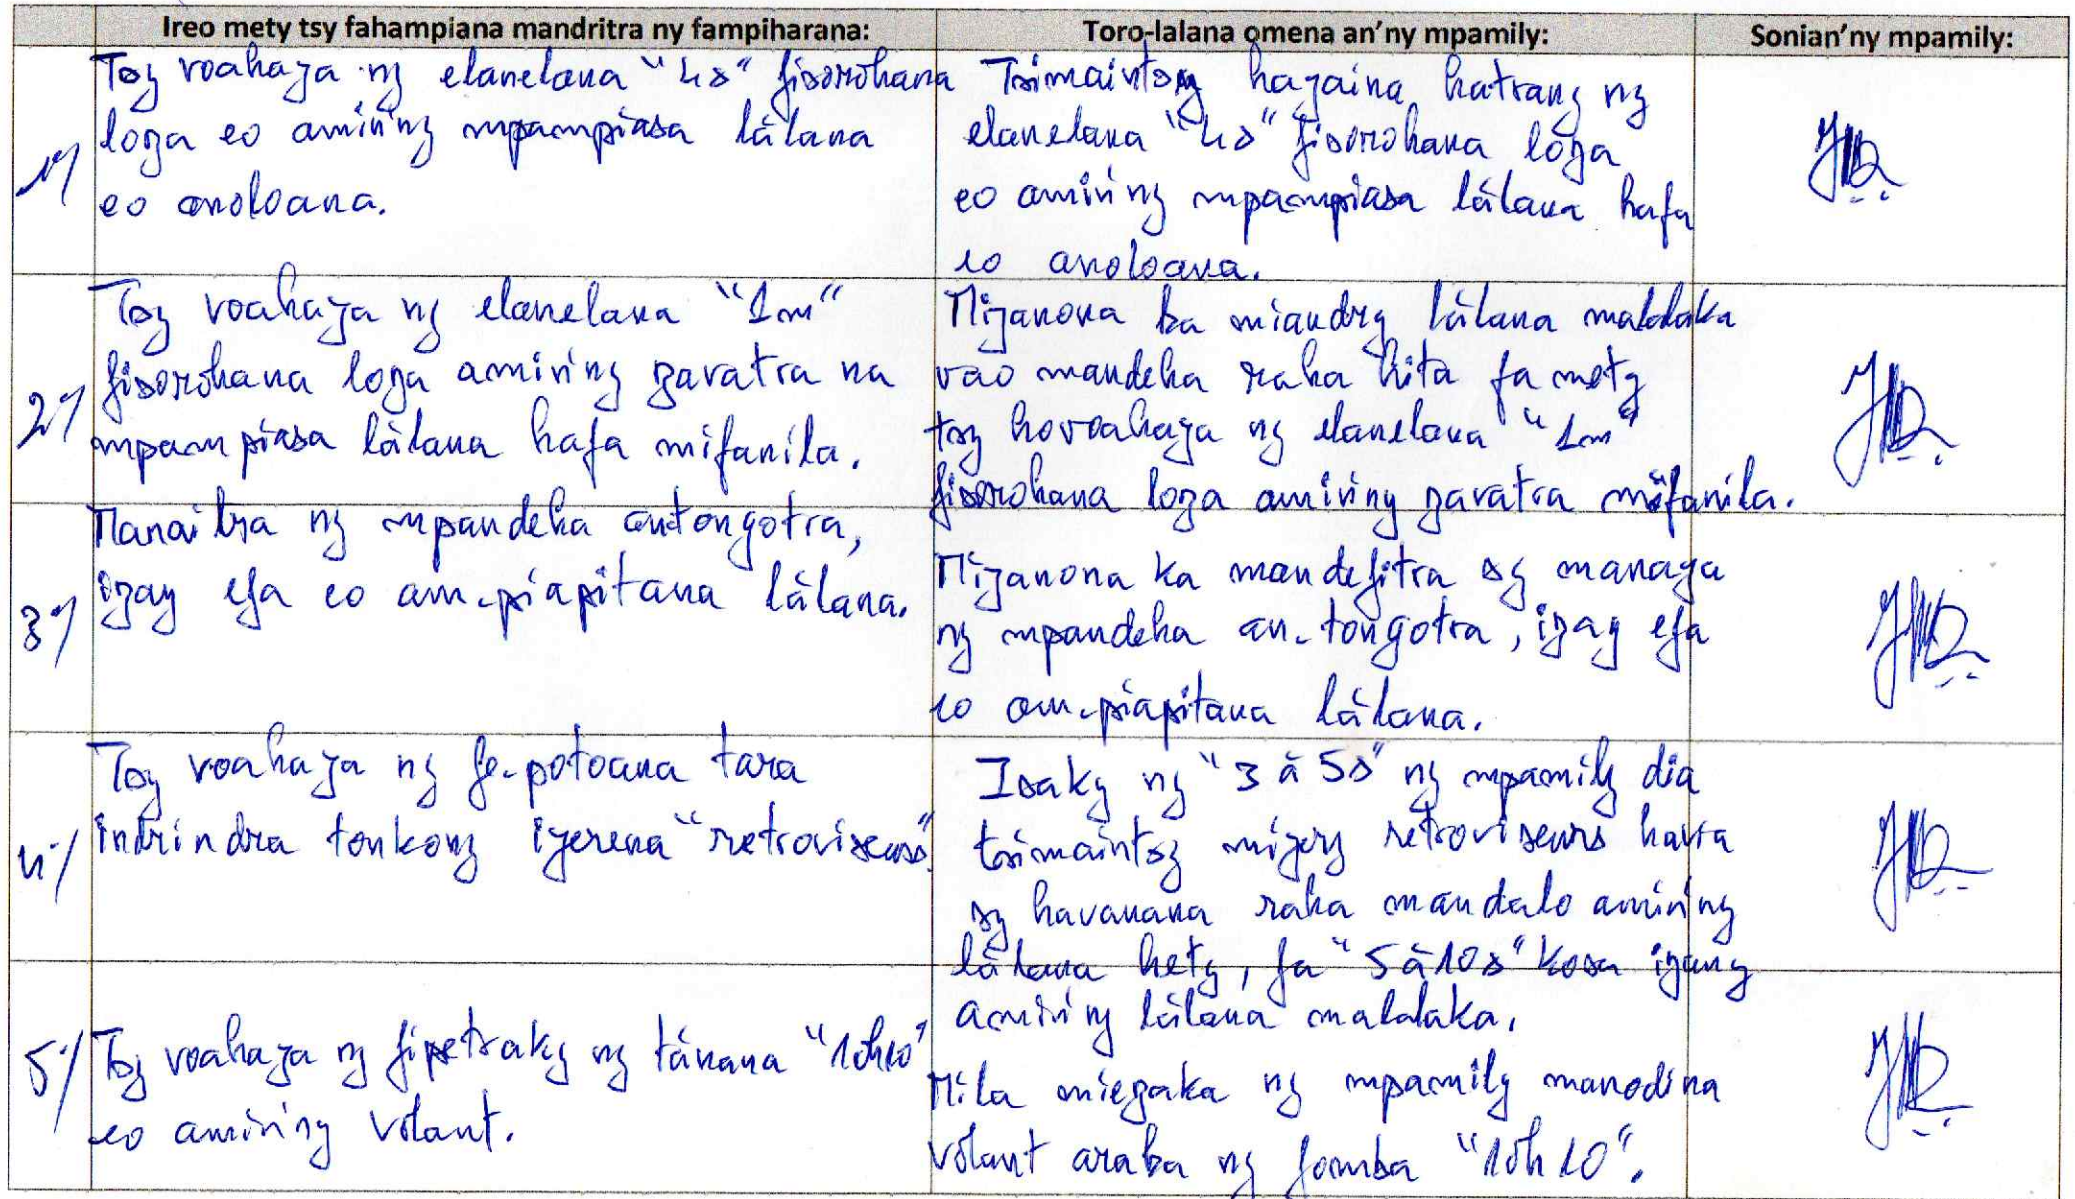 Ireo mety tsy fahampiana mandritra ny fampiharana:
Toro-lalana omena an'ny mpamily:
Sonian'ny mpamily:
1/
Tsy voahaja ny elanelana "4s" fisorohana
loza eo amin'ny mpampiasa làlana
eo anoloana.
Tsimaintsy hajaina hatrany ny
elanelana "4s" fisorohana loza
eo amin'ny mpampiasa làlana hafa
eo anoloana.
2/
Tsy voahaja ny elanelana "1m"
fisorohana loza amin'ny zavatra na
mpampiasa làlana hafa mifanila.
Mijanona ka miandry làlana malalaka
vao mandeha raha hita fa mety
tsy hovoahaja ny elanelana "1m"
fisorohana loza amin'iny zavatra mifanila.
3/
Manaitra ny mpandeha antongotra,
izay efa eo am-piapitana làlana.
Mijanona ka mandefitra sy manaja
ny mpandeha an-tongotra, izay efa
eo am-piapitana làlana.
4/
Tsy voahaja ny fe-potoana tara
indrindra tonkony ijerena "retroviseurs".
Isaky ny "3 à 5s" ny mpamily dia
tsimaintsy mijery retroviseurs havia
sy havanana raha mandalo amin'ny
làlana hety, fa "5 à 10s" kosa izany
amin'ny làlana malalaka.
5/
Tsy voahaja ny fipetraky ny tànana "10h10"
eo amin'ny volant.
Mila miezaka ny mpamily manodina
volant araka ny fomba "10h10".